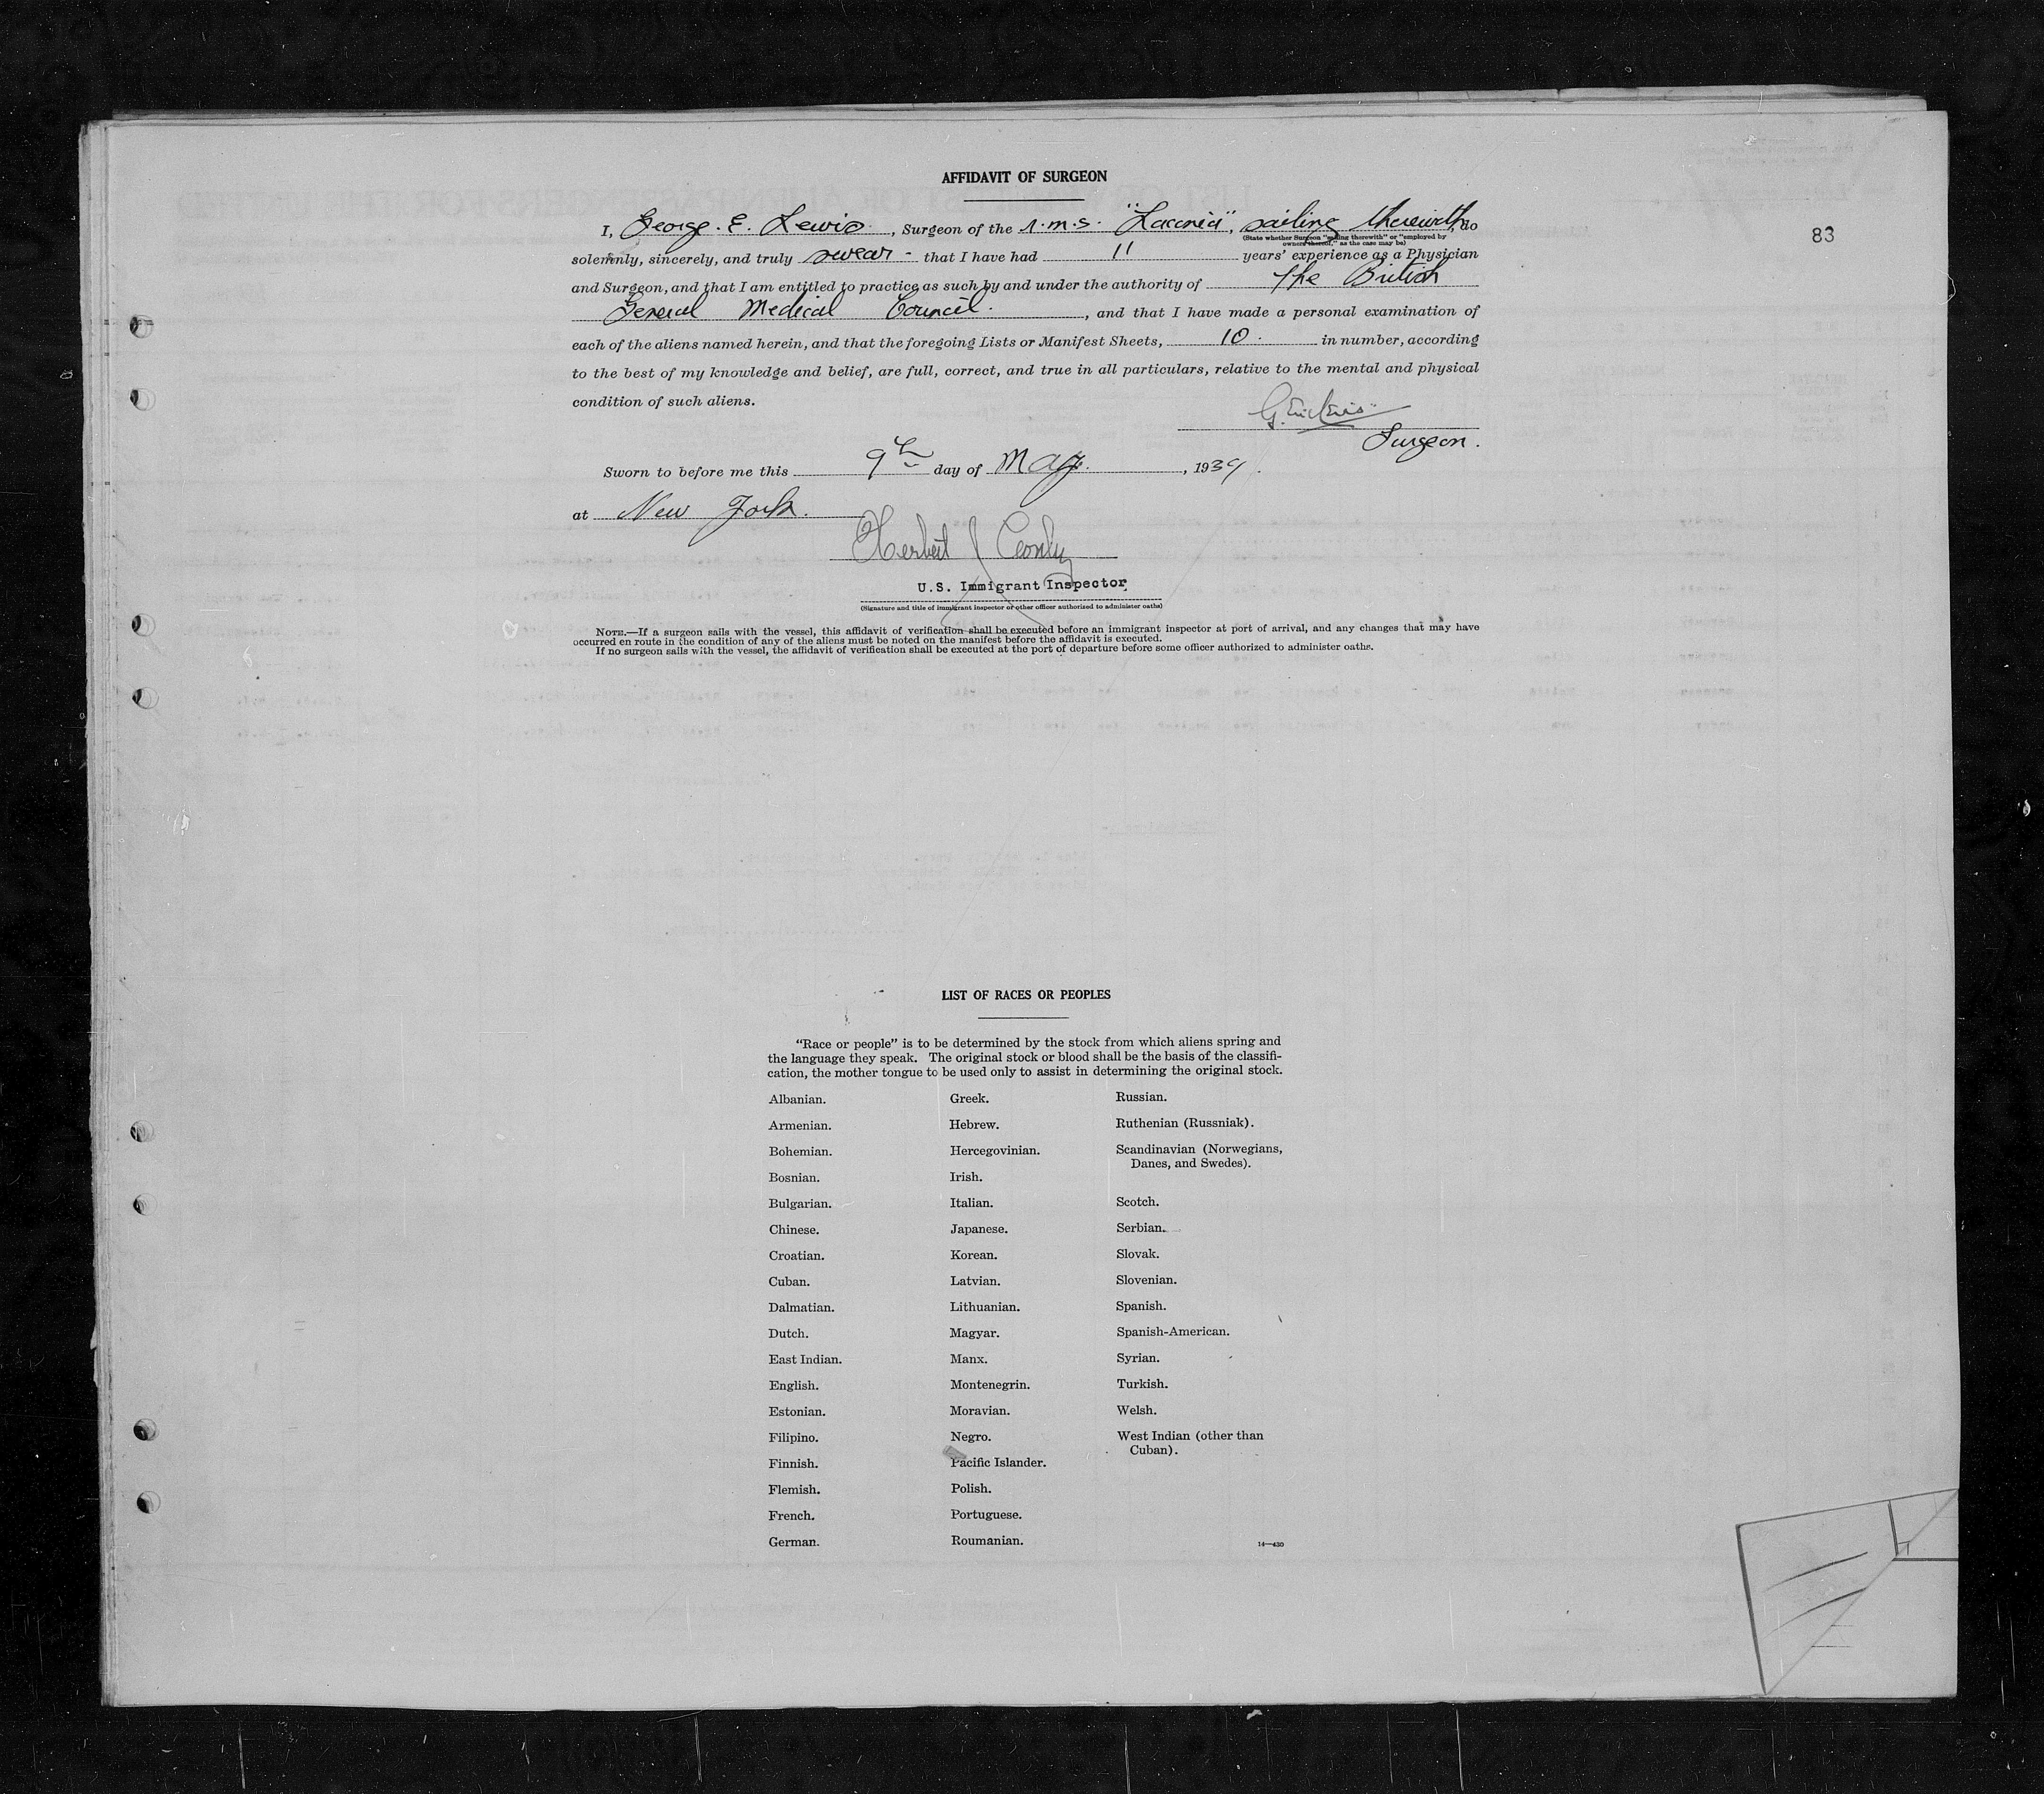 AFFIDAVIT OF SURGEON
83
I, George. E. Lewis., Surgeon of the s.m.s. "Laconia", sailing therewith, do
(State whether Surgeon "sailing therewith" or "employed by
owners thereof," as the case may be)
solemnly, sincerely, and truly swear - that I have had 11 years' experience as a Physician
and Surgeon, and that I am entitled to practice as such by and under the authority of The British
General Medical Council., and that I have made a personal examination of
each of the aliens named herein, and that the foregoing Lists or Manifest Sheets, 10. in number, according
to the best of my knowledge and belief, are full, correct, and true in all particulars, relative to the mental and physical
condition of such aliens.
Surgeon.
Sworn to before me this 9th day of May., 1939.
at New York.
Herbert J
U.S. Immigrant Inspector
(Signature and title of immigrant inspector or other officer authorized to administer oaths)
NOTE.—If a surgeon sails with the vessel, this affidavit of verification shall be executed before an immigrant inspector at port of arrival, and any changes that may have
occurred en route in the condition of any of the aliens must be noted on the manifest before the affidavit is executed.
If no surgeon sails with the vessel, the affidavit of verification shall be executed at the port of departure before some officer authorized to administer oaths.
LIST OF RACES OR PEOPLES
"Race or people" is to be determined by the stock from which aliens spring and
the language they speak. The original stock or blood shall be the basis of the classifi-
cation, the mother tongue to be used only to assist in determining the original stock.
Albanian.
Armenian.
Bohemian.
Bosnian.
Bulgarian.
Chinese.
Croatian.
Cuban.
Dalmatian.
Dutch.
East Indian.
English.
Estonian.
Filipino.
Finnish.
Flemish.
French.
German.
Greek.
Hebrew.
Hercegovinian.
Irish.
Italian.
Japanese.
Korean.
Latvian.
Lithuanian.
Magyar.
Manx.
Montenegrin.
Moravian.
Negro.
Pacific Islander.
Polish.
Portuguese.
Roumanian.
Russian.
Ruthenian (Russniak).
Scandinavian (Norwegians,
Danes, and Swedes).
Scotch.
Serbian.
Slovak.
Slovenian.
Spanish.
Spanish-American.
Syrian.
Turkish.
Welsh.
West Indian (other than
Cuban).
14—430